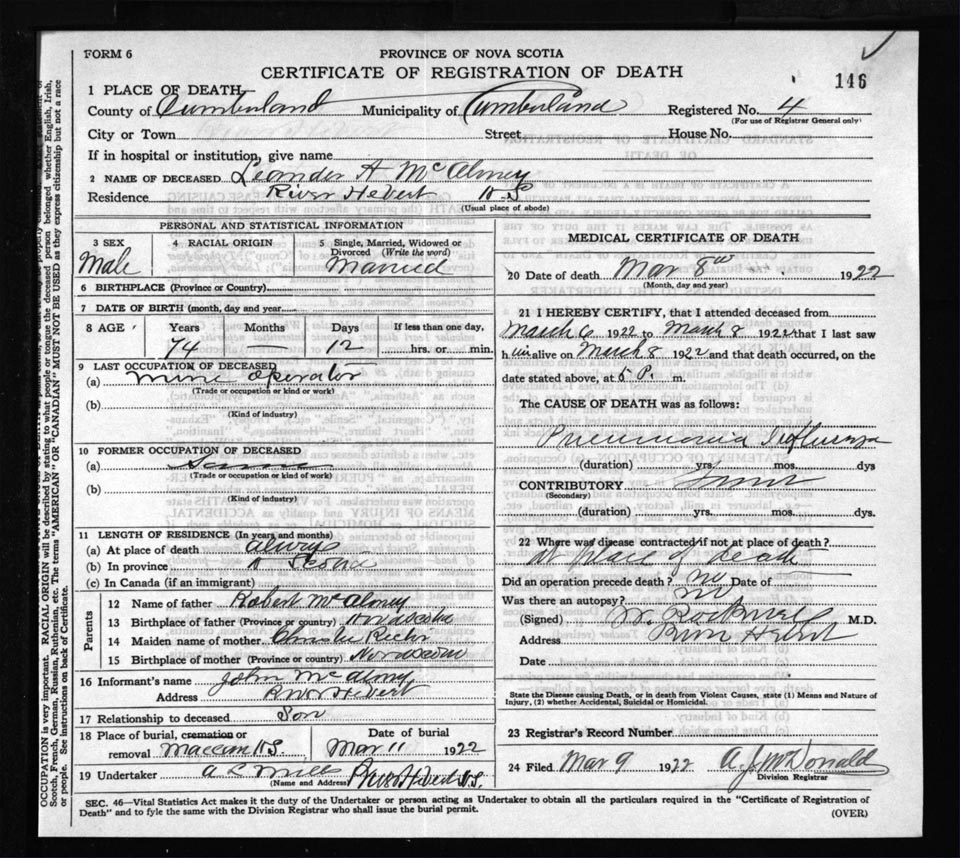 FORM 6
PROVINCE OF NOVA SCOTIA
CERTIFICATE OF REGISTRATION OF DEATH
146
1 PLACE OF DEATH
County of Cumberland Municipality of Cumberland Registered No. 4
(For use of Registrar General only)
City or Town Street House No.
If in hospital or institution, give name
2 NAME OF DECEASED Leander A McAlmey
Residence River Hebert N-S
(Usual place of abode)
PERSONAL AND STATISTICAL INFORMATION
3 SEX 4 RACIAL ORIGIN 5 Single, Married, Widowed or Divorced (Write the word)
Male Married
6 BIRTHPLACE (Province or Country)
7 DATE OF BIRTH (month, day and year
8 AGE Years Months Days If less than one day,
74 — 12 hrs. or min.
9 LAST OCCUPATION OF DECEASED
(a) mine operator
(Trade or occupation or kind of work)
(b)
(Kind of industry)
10 FORMER OCCUPATION OF DECEASED
(a) Same
(Trade or occupation or kind of work)
(b)
(Kind of industry)
11 LENGTH OF RESIDENCE (In years and months)
(a) At place of death always
(b) In province N Scotia
(c) In Canada (if an immigrant)
Parents
12 Name of father Robert McAlmey
13 Birthplace of father (Province or country) Nova Scotia
14 Maiden name of mother
15 Birthplace of mother (Province or country) Nova Scotia
16 Informant's name John McAlmey
Address River Hebert
17 Relationship to deceased Son
18 Place of burial, cremation or removal Maccan N.S. Date of burial Mar 11 1922
19 Undertaker River Hebert N.S.
(Name and Address)
MEDICAL CERTIFICATE OF DEATH
20 Date of death Mar 8th 1922
(Month, day and year)
21 I HEREBY CERTIFY, that I attended deceased from
March 6 1922 to March 8 1922 that I last saw
him alive on March 8 1922 and that death occurred, on the
date stated above, at 5 P. m.
The CAUSE OF DEATH was as follows:
Pneumonia Influenza
(duration) yrs. mos. dys
CONTRIBUTORY
(Secondary)
(duration) yrs. mos. dys.
22 Where was disease contracted if not at place of death?
at place of death
Did an operation precede death? no Date of
Was there an autopsy? no
(Signed) M.D.
Address River Hebert
Date
State the Disease causing Death, or in death from Violent Causes, state (1) Means and Nature of
Injury, (2) whether Accidental, Suicidal or Homicidal.
23 Registrar's Record Number
24 Filed Mar 9 1922 A. J. McDonald
Division Registrar
SEC. 46—Vital Statistics Act makes it the duty of the Undertaker or person acting as Undertaker to obtain all the particulars required in the "Certificate of Registration of
Death" and to fyle the same with the Division Registrar who shall issue the burial permit.
(OVER)